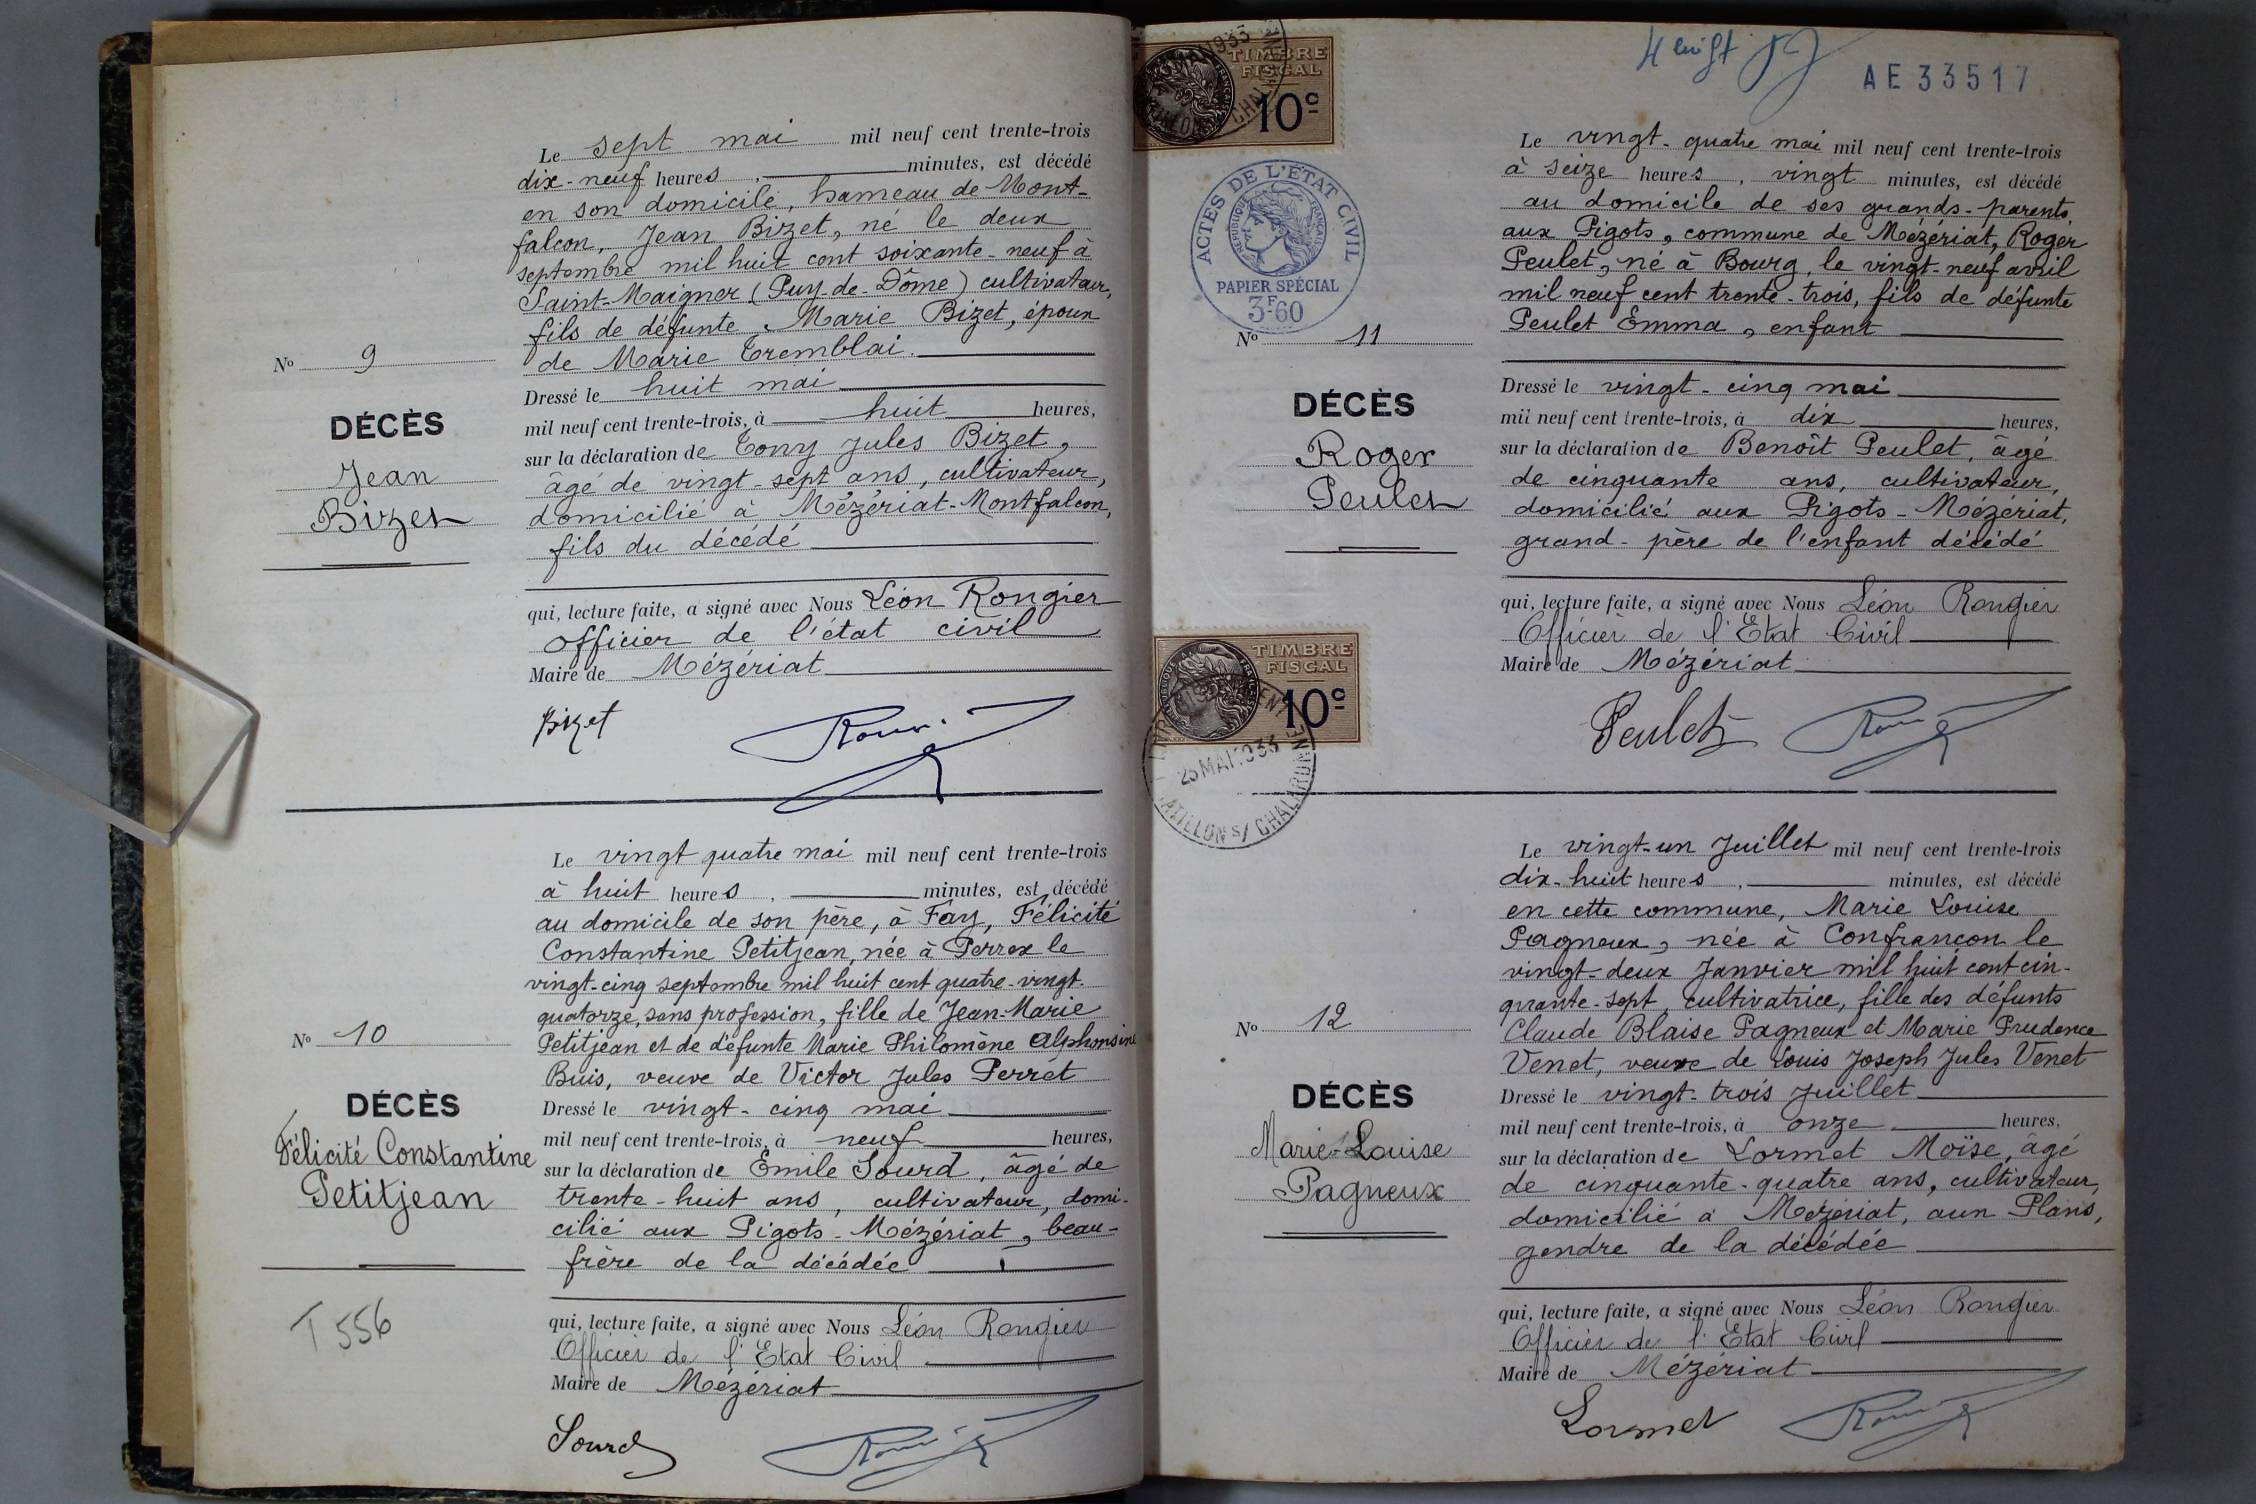 Le sept mai mil neuf cent trente-trois
dix-neuf heures, minutes, est décédé
en son domicile, hameau de Mont-
falcon, Jean Bizet, né le deux
septembre mil huit cent soixante-neuf à
Saint-Maigner (Puy-de-Dôme) cultivateur,
fils de défunte Marie Bizet, époux
de Marie Tremblai.
No 9
DÉCÈS
Jean
Bizet
Dressé le huit mai
mil neuf cent trente-trois, à huit heures,
sur la déclaration de Tony Jules Bizet,
âgé de vingt-sept ans, cultivateur,
domicilié à Mézériat-Montfalcon,
fils du décédé
qui, lecture faite, a signé avec Nous Léon Rongier
officier de l'état civil
Maire de Mézériat
Bizet
Le vingt quatre mai mil neuf cent trente-trois
à huit heures, minutes, est décédé
au domicile de son père, à Fay, Félicité
Constantine Petitjean, née à Perrex le
vingt-cinq septembre mil huit cent quatre-vingt-
quatorze, sans profession, fille de Jean-Marie
Petitjean et de défunte Marie Philomène Alphonsine
Buis, veuve de Victor Jules Perret
No 10
DÉCÈS
Félicité Constantine
Petitjean
T 556
Dressé le vingt-cinq mai
mil neuf cent trente-trois, à neuf heures,
sur la déclaration de Émile Sourd, âgé de
trente-huit ans, cultivateur, domi-
cilié aux Pigots-Mézériat, beau-
frère de la décédée
qui, lecture faite, a signé avec Nous Léon Rongier
Officier de l'Etat Civil
Maire de Mézériat
Sourd
TIMBRE
FISCAL
10c
AE33517
ACTES DE L'ÉTAT CIVIL
RÉPUBLIQUE FRANÇAISE
PAPIER SPÉCIAL
3F60
Le vingt-quatre mai mil neuf cent trente-trois
à seize heures, vingt minutes, est décédé
au domicile de ses grands-parents,
aux Pigots, commune de Mézériat, Roger
Peulet, né à Bourg, le vingt-neuf avril
mil neuf cent trente-trois, fils de défunte
Peulet Emma, enfant
No 11
DÉCÈS
Roger
Peulet
Dressé le vingt-cinq mai
mil neuf cent trente-trois, à dix heures,
sur la déclaration de Benoît Peulet, âgé
de cinquante ans, cultivateur,
domicilié aux Pigots-Mézériat,
grand-père de l'enfant décédé
qui, lecture faite, a signé avec Nous Léon Rongier
Officier de l'Etat Civil
Maire de Mézériat
Peulet
TIMBRE
FISCAL
10c
25 MAI 1933
CHATILLON s/ CHALARONNE
Le vingt-un Juillet mil neuf cent trente-trois
dix-huit heures, minutes, est décédé
en cette commune, Marie Louise
Pagneux, née à Confrançon le
vingt-deux Janvier mil huit cent cin-
quante-sept, cultivatrice, fille des défunts
Claude Blaise Pagneux et Marie Prudence
Venet, veuve de Louis Joseph Jules Venet
No 12
DÉCÈS
Marie-Louise
Pagneux
Dressé le vingt-trois juillet
mil neuf cent trente-trois, à onze heures,
sur la déclaration de Lormet Moïse, âgé
de cinquante-quatre ans, cultivateur,
domicilié à Mézériat, aux Plans,
gendre de la décédée
qui, lecture faite, a signé avec Nous Léon Rongier
Officier de l'Etat Civil
Maire de Mézériat
Lormet